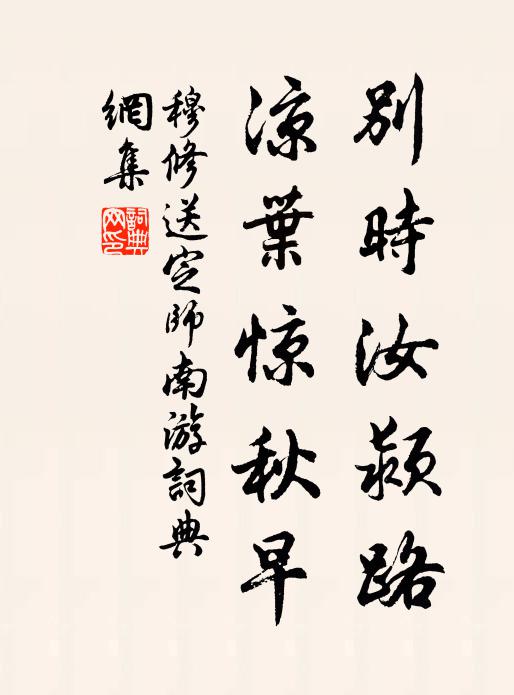 別時汝潁路
涼葉惊秋早
穆修送定師南游詞典
網集
詞典
网印